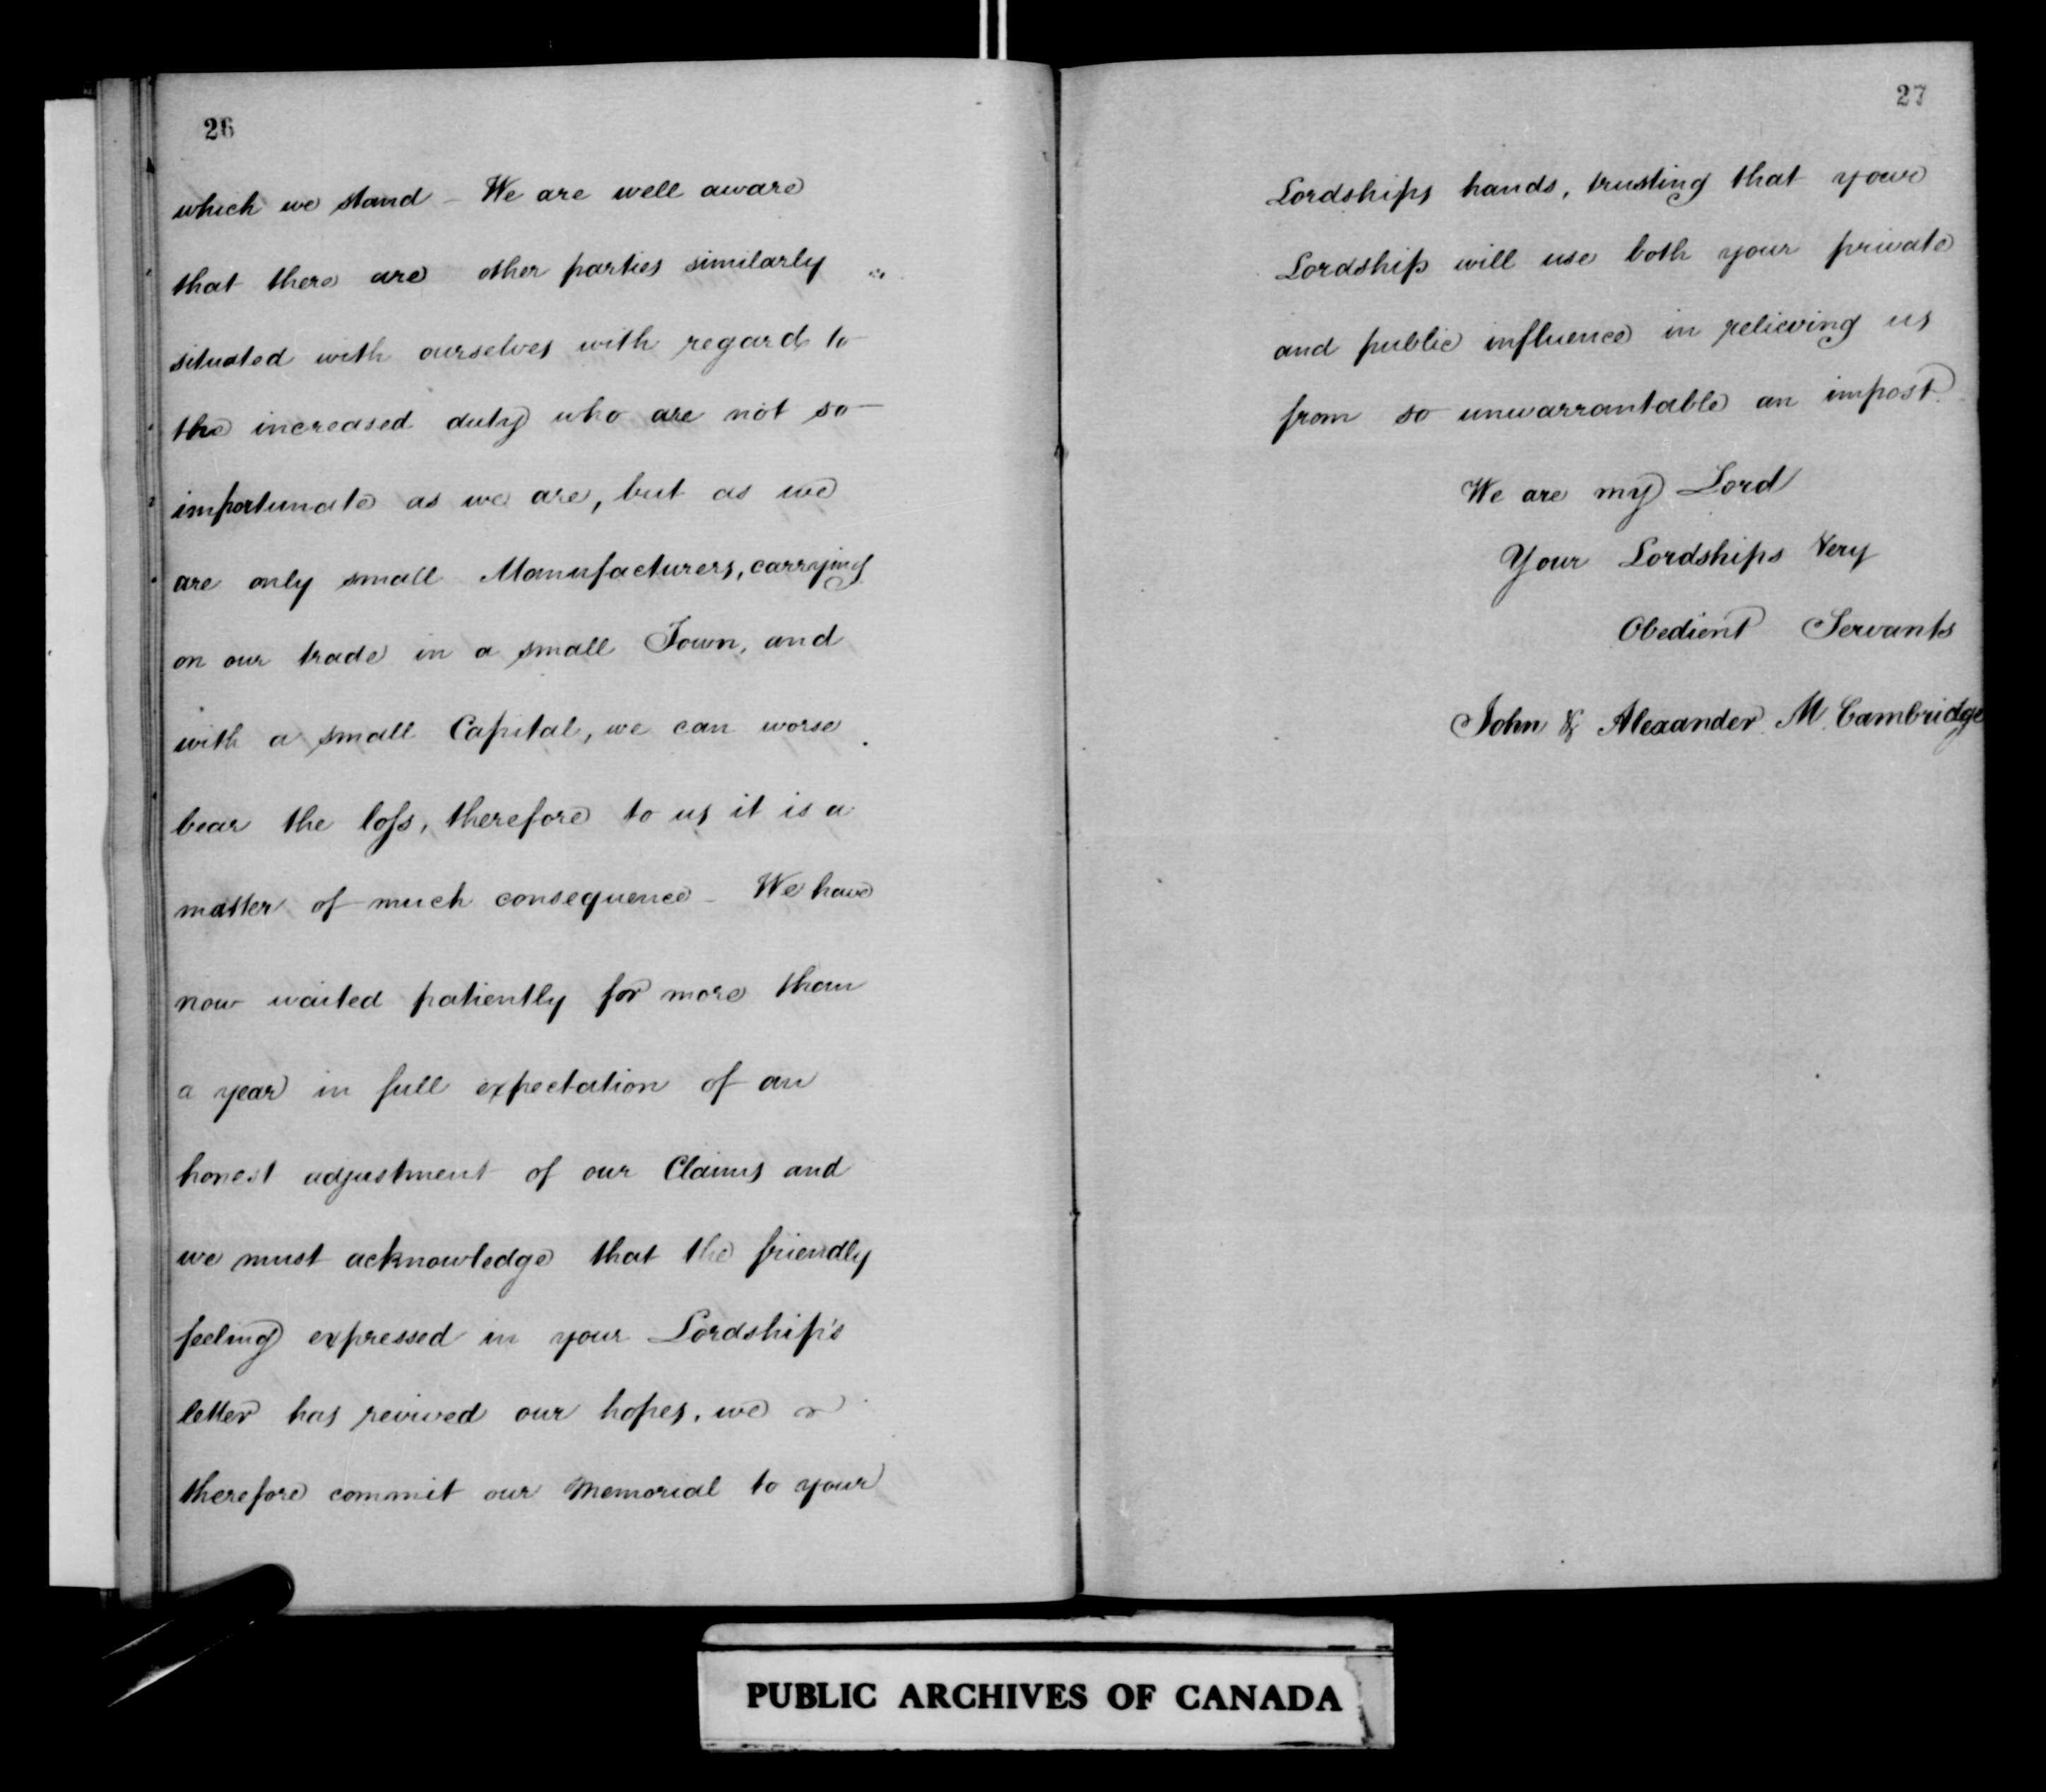 26
which we stand - We are well aware
that there are other parties similarly
situated with ourselves with regard to
the increased duty who are not so
importunate as we are, but as we
are only small Manufacturers, carrying
on our trade in a small Town, and
with a small Capital, we can worse
bear the loss, therefore to us it is a
matter of much consequence - We have
now waited patiently for more than
a year in full expectation of an
honest adjustment of our Claims and
we must acknowledge that the friendly
feeling expressed in your Lordship's
letter has revived our hopes, we
therefore commit our Memorial to your
27
Lordships hands, trusting that your
Lordship will use both your private
and public influence in relieving us
from so unwarrantable an impost.
We are my Lord
Your Lordships Very
Obedient Servants
John & Alexander M. Cambridge
PUBLIC ARCHIVES OF CANADA